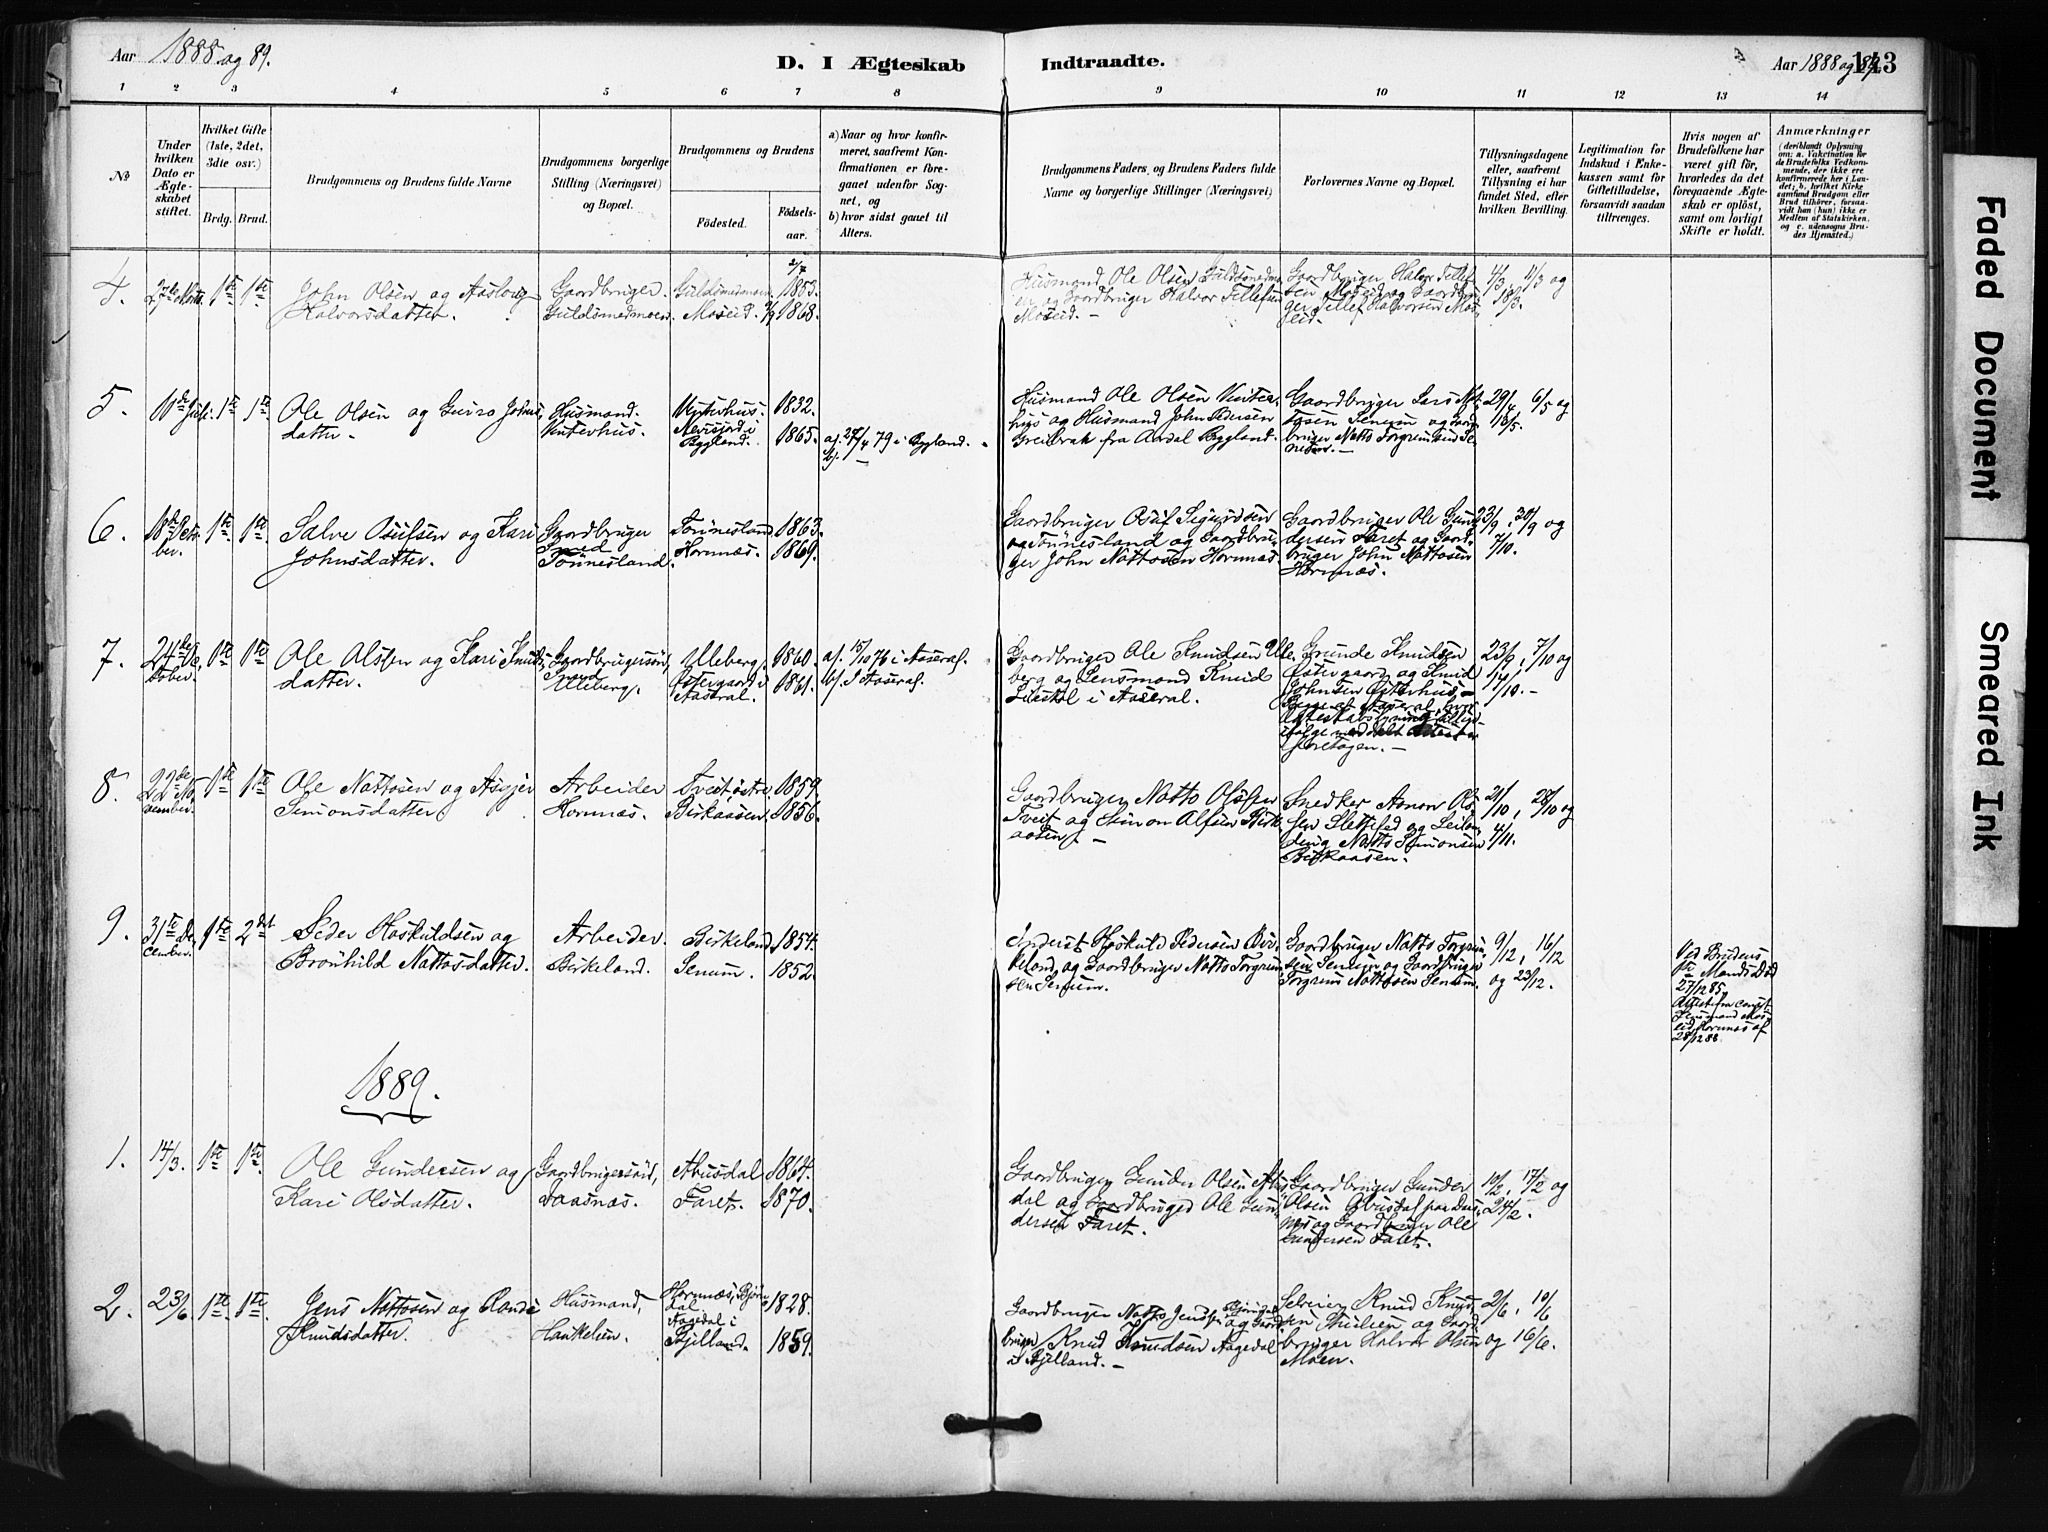 Aar 1888 og 89.
D. I Ægteskab Indtraadte.
Aar 1888 og 89. 143
1 2 3 4 5 6 7 8 9 10 11 12 13 14
No
Under hvilken Dato er Ægteskabet stiftet.
Hvilket Gifte (1ste, 2det, 3dte osv.)
Brdg. Brud.
Brudgommens og Brudens fulde Navne
Brudgommens borgerlige Stilling (Næringsvei) og Bopæl.
Brudgommens og Brudens
Födested.
Födsels-aar.
a) Naar og hvor konfirmeret, saafremt Konfirmationen er foregaaet udenfor Sognet, og
b) hvor sidst gaaet til Alters.
Brudgommens Faders, og Brudens Faders fulde Navne og borgerlige Stillinger (Næringsvei)
Forlovernes Navne og Bopæl.
Tillysningsdagene eller, saafremt Tillysning ei har fundet Sted, efter hvilken Bevilling.
Legitimation for Indskud i Enkekassen samt for Giftetilladelse, forsaavidt saadan tiltrænges.
Hvis nogen af Brudefolkene har været gift för, hvorledes da det foregaaende Ægteskab er oplöst, samt om lovligt Skifte er holdt.
Anmærkninger
4. 1ste 1ste
John Olsen og Aaslaug
Halvorsdatter.
Gaardbruger
Guldsmedmoen.
Guldsmedmoen 2/7 1853.
Moseid. 1868.
Husmand Ole Olsen Guldsmedmo
en og Gaardbruger Halvor Tellefsen
Moseid. –
Gaardbruger Halvor Tellef
sen Moseid og Gaardbru
ger Tellef Halvorsen Mos
eid.
4/3 11/3 og
18/3.
5. 1ste 1ste
Ole Olsen og Guro Johns
datter.
Husmand.
Vinterhus.
Vinterhus. 1832.
Bygland. 1865.
a). 27/4 79 i Bygland.
b). –
Husmand Ole Olsen Vinter
hus og Husmand John Pedersen
Breibrak fra Aardal Bygland.
Gaardbruger Lars Not
tosen Senum og Gaard
bruger Notto Torgrimsen Se
num. –
29/4 6/5 og
16/5.
6. 18de Octo
ber. 1ste 1ste
Salve Osufsen og Kari
Johnsdatter.
Gaardbruger
Tönnesland.
Tönnesland 1863.
Hornnæs. 1869.
Gaardbruger Osuf Sigurdsen
Tönnesland og Gaardbru
ger John Nottosen Hornnæs.
Gaardbruger Ole Gun
dersen Faret og Gaard
bruger John Nottosen
Hornnæs.
23/9, 30/9 og
7/10.
7. 24de Oc
tober. 1ste 1ste
Ole Olsen og Kari Knuds
datter.
Gaardbrugersön,
Uleberg.
Uleberg. 1860.
Östergaard i
Aaseral. 1861.
a). 15/10 76 i Aaseral.
b). I Aaseral.
Gaardbruger Ole Knudsen Ule
berg og Lensmand Knud
Lilestöl i Aaseral.
Grunde Knudsen
Östergaard og Knud
Johnsen Österhus, –
Begge af Aaseral, hvor
foretagen. –
23/9, 7/10 og
14/10. –
8. 22de No
vember. 1ste 1ste
Ole Nottosen og Asgjer
Simonsdatter.
Arbeider
Hornnæs.
Tveit, östre, 1859.
Birkaasen 1856.
Gaardbruger Notto Olsen
Tveit og Simon Alfsen Birk
aasen. –
Snedker Aanon Ols
sen Slettefed og Leilæn
ding Notto Simonsen
Birkaasen.
21/10, 28/10 og
4/11.
9. 31te De
cember. 1ste 2det
Peder Hoskuldsen og
Brönhild Nottosdatter.
Arbeider.
Birkeland.
Birkeland 1854.
Senum. 1852.
Inderst Hoskuld Pedersen Bir
keland og Gaardbruger Notto Torgrim
sen Senum.
Gaardbruger Notto Torgrim
sen Senum og Gaardbruger
Torgrim Nottosen Senum.
9/12, 16/12
og 23/12.
Ved Brudens
1ste Mands Död
27/12 85,
Attest fra const.
Lensmand Mos
eid Hornnæs af
28/12 88.
1889.
1. 14/3. 1ste 1ste
Ole Gundersen og
Kari Olsdatter.
Gaardbrugersön,
Faasnæs.
Abusdal 1864.
Faret. 1870.
Gaardbruger Gunder Olsen Abus
dal og Gaardbruger Ole Gun
dersen Faret.
Gaardbruger Gunder
Olsen Abusdal
og Gaardbruger Ole
Gundersen Faret.
10/2, 17/2 og
24/2.
2. 23/6. 1ste 1ste
Jens Nottosen og Randi
Knudsdatter.
Husmand,
Hornnæs, Björn
dal 1828.
Aagedal i
Bjelland. 1859.
Gaardbruger Notto Jensen og Gaard
bruger Knud Knudsen Aagedal
i Bjelland. –
Selveier Knud Knud
sen og Gaard
bruger Halvor Olsen
Moen.
2/6, 10/6
og 16/6.
Faded Document
Smeared Ink